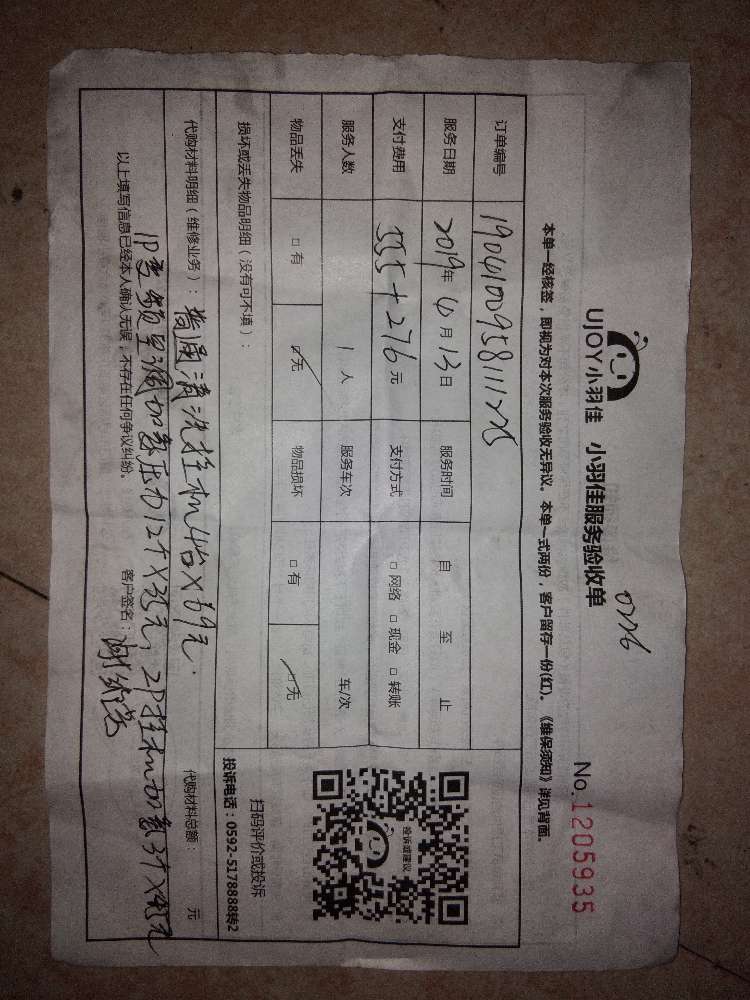 UJOY小羽佳 小羽佳服务验收单
No.1205935
本单一经核签，即视为对本次服务验收无异议。本单一式两份，客户留存一份(红)。《维保须知》详见背面。
订单编号
服务日期 2019年 4月 13日 服务时间 自 至 止
支付费用 555+276元 支付方式 □网络 □现金 □转账
服务人数 1人 服务车次 车/次
物品丢失 □有 □无 物品损坏 □有 □无
损坏或丢失物品明细（没有可不填）：
扫码评价或投诉
投诉电话：0592-5178888转2
投诉或建议
代购材料明细（维修业务）：普通清洗挂机4台×69元.
代购材料总额： 元
1P变频空调加氟压力 2P挂机加氟
以上填写信息已经本人确认无误，不存在任何争议纠纷。
客户签名：